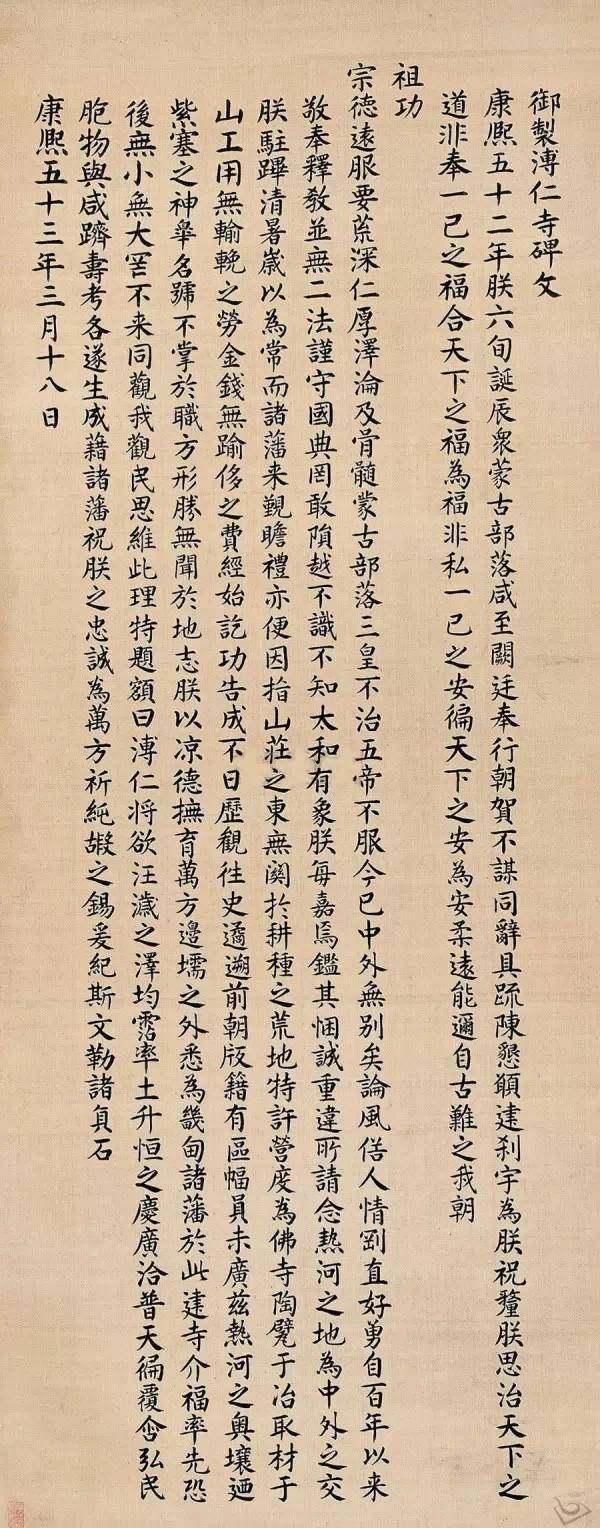 御製溥仁寺碑文
康熙五十二年朕六旬誕辰衆蒙古部落咸至闕廷奉行朝賀不謀同辭具疏陳懇願建刹宇為朕祝釐朕思治天下之
道非奉一己之福合天下之福為福非私一己之安徧天下之安為安柔遠能邇自古難之我朝
祖功
宗德遠服要荒深仁厚澤淪及骨髓蒙古部落三皇不治五帝不服今已中外無別矣論風俗人情剛直好勇自百年以来
敬奉釋教並無二法謹守國典罔敢隕越不識不知太和有象朕每嘉焉鑑其悃誠重違所請念熱河之地為中外之交
朕駐蹕清暑嵗以為常而諸藩来覲瞻禮亦便因指山莊之東無関於耕種之荒地特許營度為佛寺陶甓于冶取材于
山工用無輸輓之勞金錢無踰侈之費經始訖功告成不日歷觀往史遹遡前朝版籍有區幅員未廣茲熱河之奥壤廼
紫塞之神皋名號不掌於職方形勝無聞於地志朕以涼德撫育萬方邊壖之外悉為畿甸諸藩於此建寺介福率先恐
後無小無大罔不来同觀我觀民思維此理特題額曰溥仁将欲汪濊之澤均霑率土升恒之慶廣洽普天徧覆含弘民
胞物與咸躋壽考各遂生成藉諸藩祝朕之忠誠為萬方祈純嘏之錫爰紀斯文勒諸貞石
康熙五十三年三月十八日